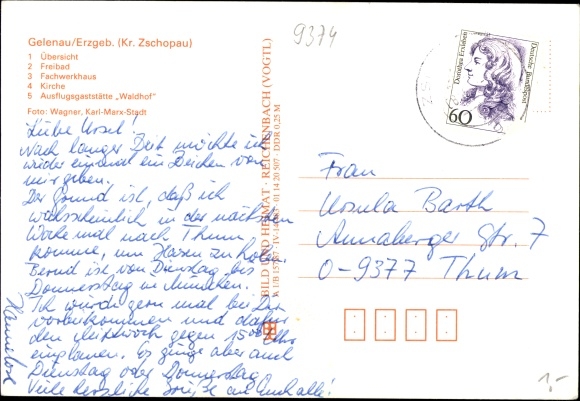 9374
Gelenau/Erzgeb. (Kr. Zschopau)
1 Übersicht
2 Freibad
3 Fachwerkhaus
4 Kirche
5 Ausflugsgaststätte „Waldhof"
Foto: Wagner, Karl-Marx-Stadt
Liebe Ursel!
Nach langer Zeit möchte ich
wieder einmal ein Zeichen von
mir geben.
Der Grund ist, daß ich
wahrscheinlich in der nächsten
Woche mal nach Thum
komme, um Hasen zu holen.
Bernd ist von Dienstag bis
Donnerstag in München.
Ich würde gern mal bei Dir
vorbeikommen und daher
den Mittwoch gegen 15 Uhr
einplanen. Es ginge aber auch
Dienstag oder Donnerstag.
Viele herzliche Grüße an Euch alle!
Hannelore
BILD UND HEIMAT · REICHENBACH (VOGTL)
01 14 20 507 · DDR 0,25 M
Dorothea Erxleben
Deutsche Bundespost
60
Frau
Ursula Barth
Annaberger Str. 7
O-9377 Thum
1,-